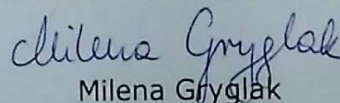 Milena Gryglak
Milena Gryglak